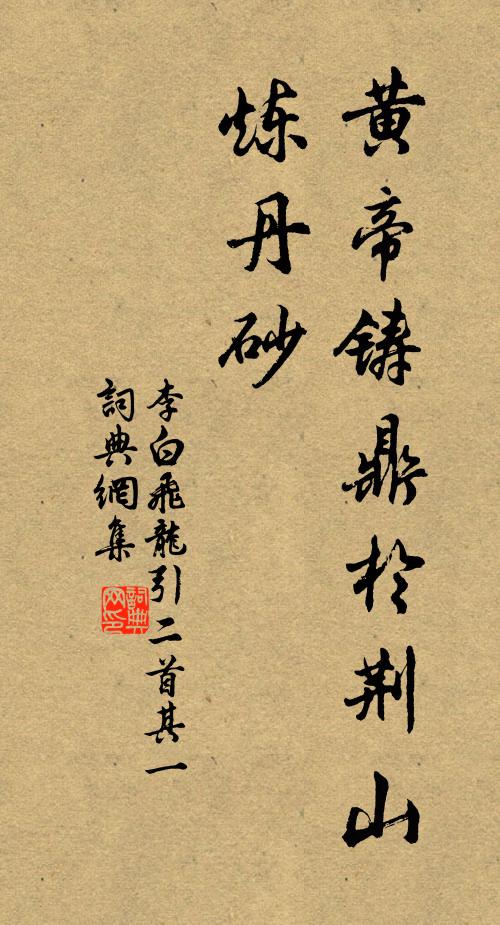 黄帝铸鼎於荆山
炼丹砂
李白飛龍引二首其一
詞典網集
詞典網印